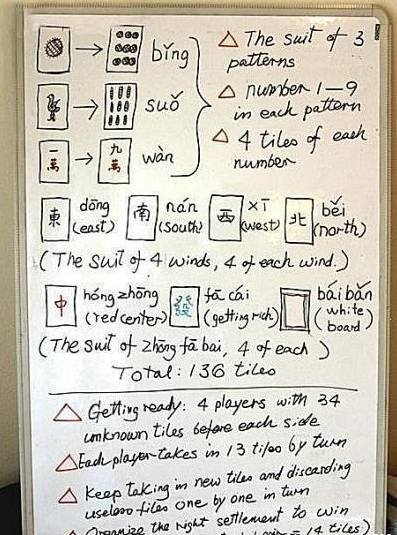 bǐng
suǒ
一萬 → 九萬 wàn
△ The suit of 3
patterns
△ number 1–9
in each pattern
△ 4 tiles of each
number
東 dōng (east) 南 nán (south) 西 xī (west) 北 běi (north)
(The suit of 4 winds, 4 of each wind.)
中 hóng zhōng (red center) 發 fā cái (getting rich) bái bǎn (white board)
(The suit of zhōng fā bai, 4 of each)
Total: 136 tiles
△ Getting ready: 4 players with 34
unknown tiles before each side
△ Each player takes in 13 tiles by turn
△ Keep taking in new tiles and discarding
useless tiles one by one in turn
△ Organize the right settlement to win
= 14 tiles)